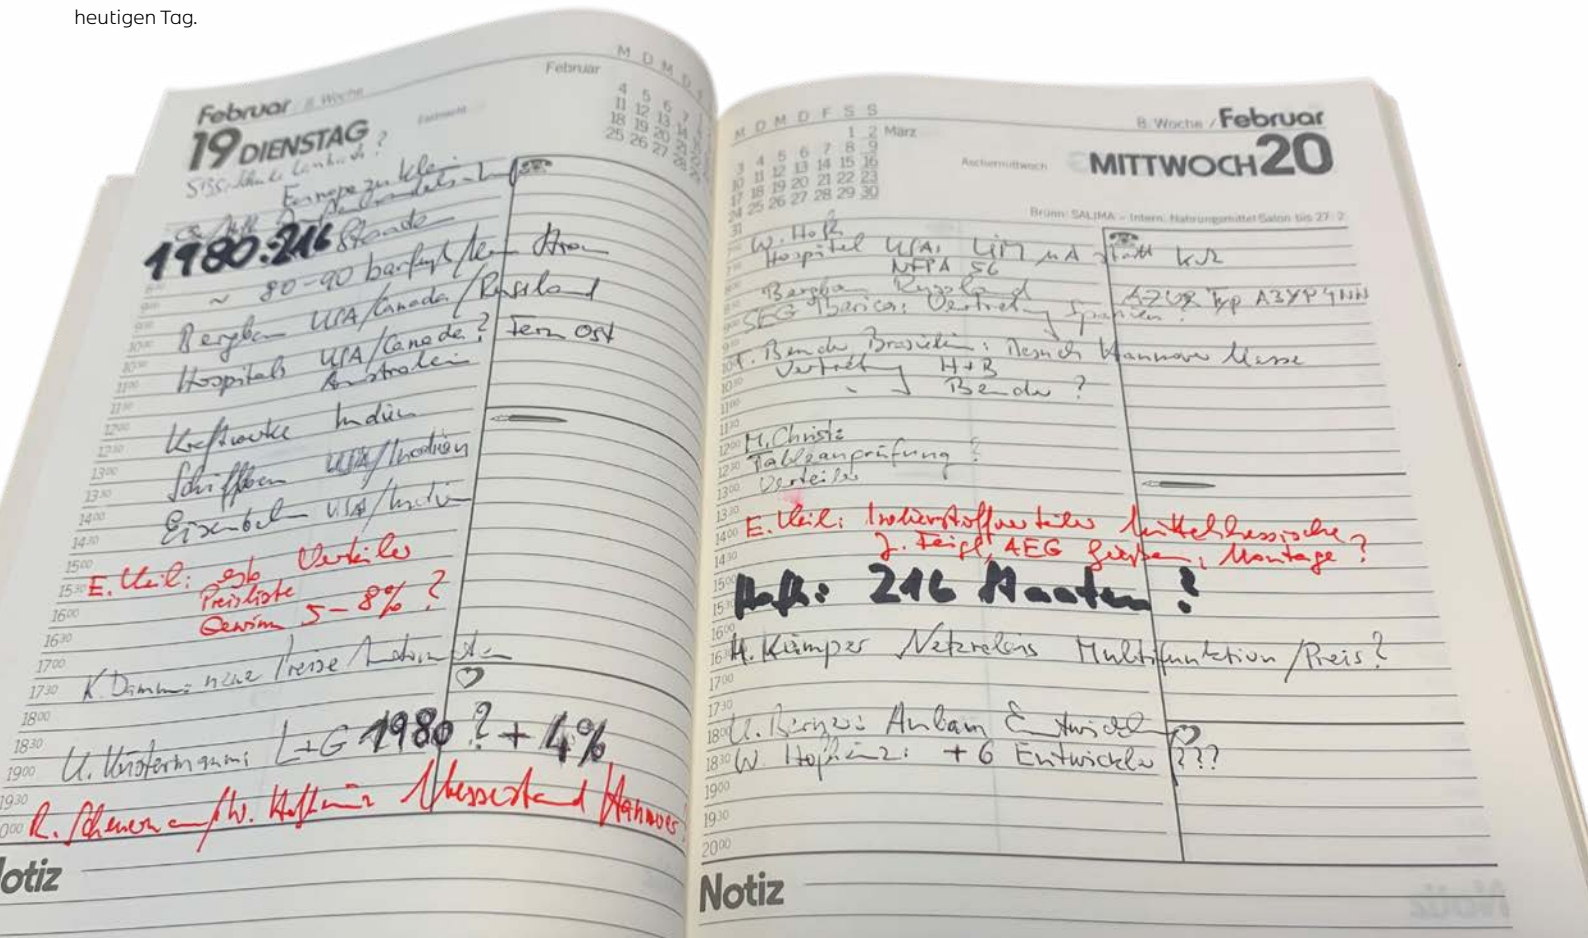 heutigen Tag.
Februar 8. Woche
19 DIENSTAG
Fastnacht
Februar
M D M D
4 5 6 7
11 12 13 14
18 19 20 21
25 26 27 28
Europa zu klein
1980:216 Staaten
~ 80-90 barfuß/kein Strom
Bergbau USA/Canada/Russland
Hospitals USA/Canada? Fern Ost
Australien
Kraftwerke Indien
Schiffbau USA/Indien
Eisenbahn USA/Indien
E. Weil: Verteiler
Preisliste
Gewinn 5-8%?
K. Damm: neue Preise
U. Küstermann: L+G 1980? + 4%
R. Scheuermann/W. Hofheinz Messestand Hannover
Notiz
M D M D F S S
1 2 März
3 4 5 6 7 8 9
10 11 12 13 14 15 16
17 18 19 20 21 22 23
24 25 26 27 28 29 30
31
8. Woche / Februar
MITTWOCH 20
Aschermittwoch
Brünn: SALIMA - Intern. Nahrungsmittel Salon bis 27. 2.
W. Hofh
Hospital USA: LIM mA statt kΩ
NFPA 56
Bergbau Russland
Typ A3YP4NN
SEG Iberica: Vertretung Spanien?
Bender Brasilien: Besuch Hannover Messe
Vertretung H+B
Bender?
M. Christe
Tableauprüfung?
Verteiler
E. Weil: Isolierstoffverteiler Mittelhessische
J. Feigl, AEG Gießen, Montage?
Hofh: 216 Staaten?
H. Kümper Netzrelais Multifunktion/Preis?
Anbau Entwickl
W. Hofheinz: +6 Entwickler ???
Notiz